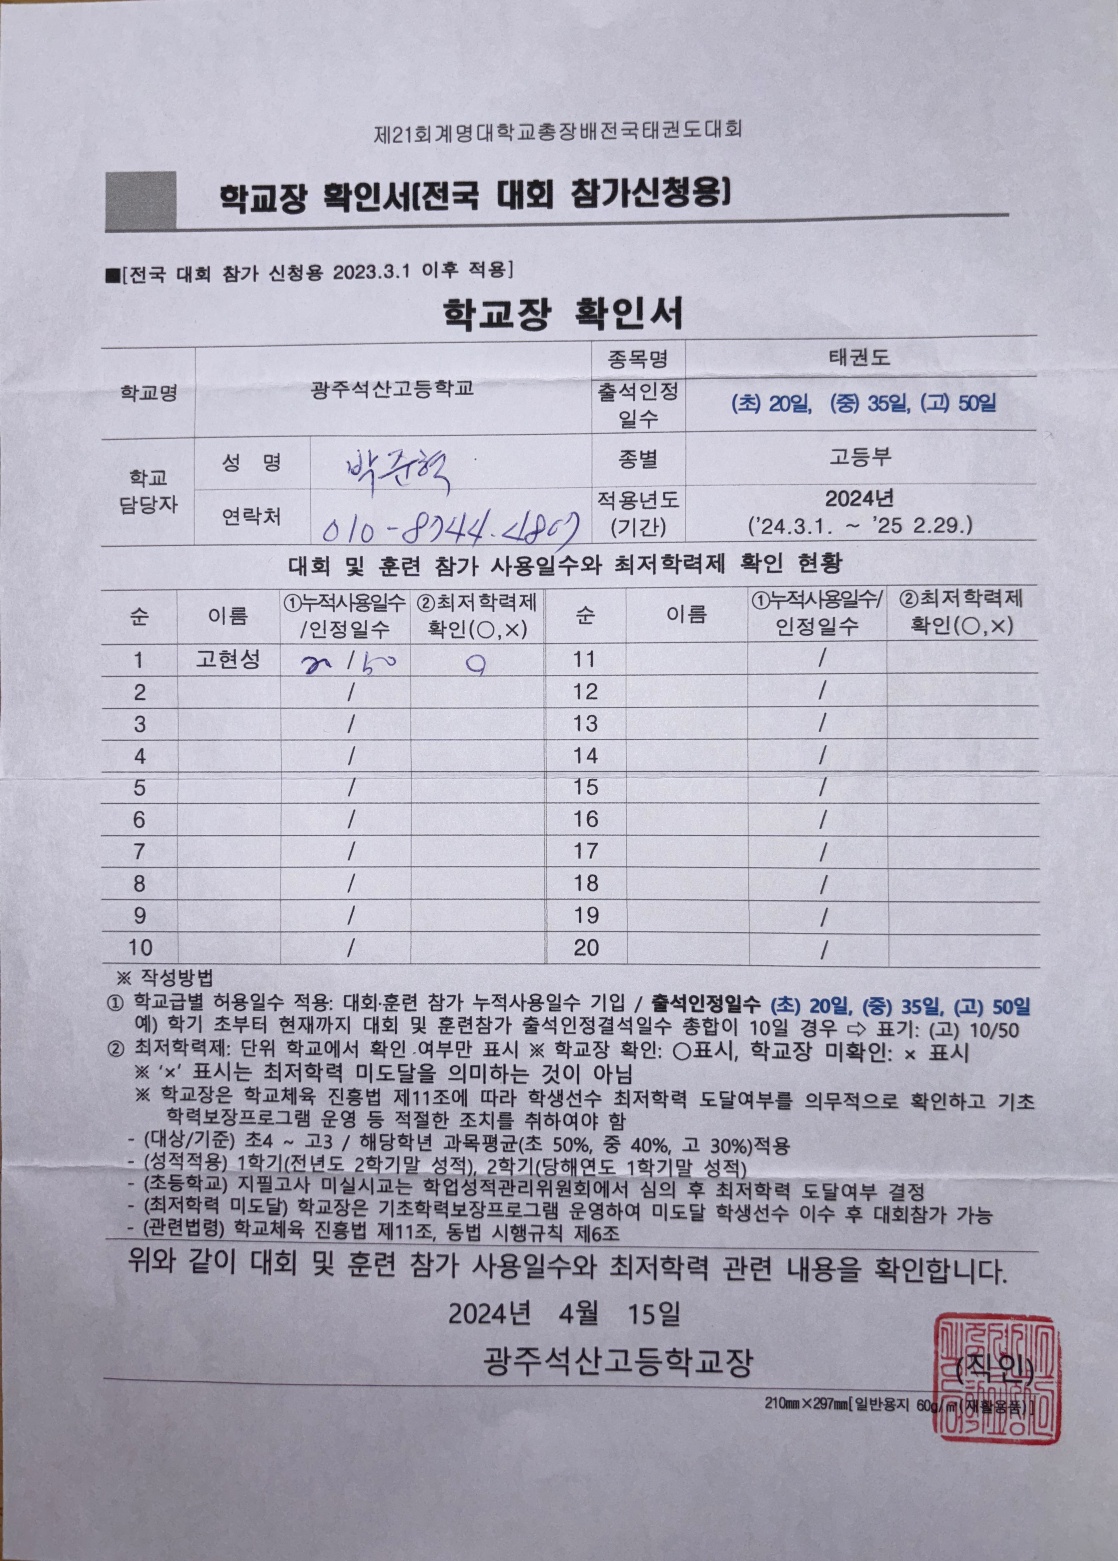 제21회계명대학교총장배전국태권도대회
학교장 확인서(전국 대회 참가신청용)
■[전국 대회 참가 신청용 2023.3.1 이후 적용]
학교장 확인서
학교명 광주석산고등학교 종목명 태권도
출석인정 일수 (초) 20일, (중) 35일, (고) 50일
학교 담당자 성 명 박준혁 종별 고등부
연락처 010-8744. 적용년도 (기간) 2024년 ('24.3.1. ~ '25 2.29.)
대회 및 훈련 참가 사용일수와 최저학력제 확인 현황
순 이름 ①누적사용일수 /인정일수 ②최저학력제 확인(○,×) 순 이름 ①누적사용일수/ 인정일수 ②최저학력제 확인(○,×)
1 고현성 /50 ○ 11 /
2 / 12 /
3 / 13 /
4 / 14 /
5 / 15 /
6 / 16 /
7 / 17 /
8 / 18 /
9 / 19 /
10 / 20 /
※ 작성방법
① 학교급별 허용일수 적용: 대회·훈련 참가 누적사용일수 기입 / 출석인정일수 (초) 20일, (중) 35일, (고) 50일
예) 학기 초부터 현재까지 대회 및 훈련참가 출석인정결석일수 총합이 10일 경우 ⇨ 표기: (고) 10/50
② 최저학력제: 단위 학교에서 확인 여부만 표시 ※ 학교장 확인: ○표시, 학교장 미확인: × 표시
※ '×' 표시는 최저학력 미도달을 의미하는 것이 아님
※ 학교장은 학교체육 진흥법 제11조에 따라 학생선수 최저학력 도달여부를 의무적으로 확인하고 기초
학력보장프로그램 운영 등 적절한 조치를 취하여야 함
- (대상/기준) 초4 ~ 고3 / 해당학년 과목평균(초 50%, 중 40%, 고 30%)적용
- (성적적용) 1학기(전년도 2학기말 성적), 2학기(당해연도 1학기말 성적)
- (초등학교) 지필고사 미실시교는 학업성적관리위원회에서 심의 후 최저학력 도달여부 결정
- (최저학력 미도달) 학교장은 기초학력보장프로그램 운영하여 미도달 학생선수 이수 후 대회참가 가능
- (관련법령) 학교체육 진흥법 제11조, 동법 시행규칙 제6조
위와 같이 대회 및 훈련 참가 사용일수와 최저학력 관련 내용을 확인합니다.
2024년 4월 15일
광주석산고등학교장 (직인)
210㎜×297㎜[일반용지 60g/㎡(재활용품)]